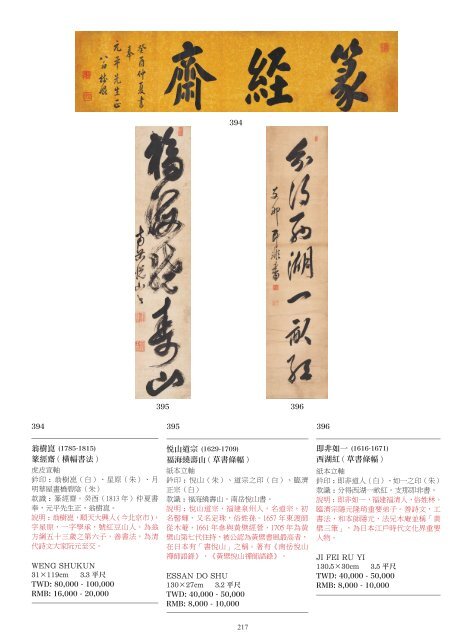 篆經齋
癸酉仲夏書
奉
元平先生正
394
福海繞壽山
南岳悅山書
分得西湖一畝紅
支那即非書
395
396
394
翁樹崑 (1785-1815)
篆經齋 ( 橫幅書法 )
虎皮宣軸
鈐印：翁樹崑（白）、星原（朱）、月
明華屋畫橋碧陰（朱）
款識：篆經齋。癸酉（1813 年）仲夏書
奉。元平先生正。翁樹崑。
說明：翁樹崑，順天大興人（今北京市），
字星原，一字學承，號紅豆山人。為翁
方綱五十三歲之第六子。善書法。為清
代詩文大家阮元至交。
WENG SHUKUN
31×119cm 3.3 平尺
TWD: 80,000 - 100,000
RMB: 16,000 - 20,000
395
悅山道宗 (1629-1709)
福海繞壽山 ( 草書條幅 )
紙本立軸
鈐印：悅山（朱）、道宗之印（白）、臨濟
正宗（白）
款識：福海繞壽山。南岳悅山書。
說明：悅山道宗，福建泉州人，名道宗，初
名聖輝，又名定珠，俗姓孫。1657 年東渡師
從木菴，1661 年參與黃檗運營，1705 年為黃
檗山第七代住持，被公認為黃檗書風最高者，
在日本有「書悅山」之稱。著有《南岳悅山
禪師語錄》、《黃檗悅山禪師語錄》。
ESSAN DO SHU
130×27cm 3.2 平尺
TWD: 40,000 - 50,000
RMB: 8,000 - 10,000
396
即非如一 (1616-1671)
西湖紅 ( 草書條幅 )
紙本立軸
鈐印：即非道人（白）、如一之印（朱）
款識：分得西湖一畝紅。支那即非書。
說明：即非如一，福建福清人，俗姓林。
臨濟宗隱元隆琦重要弟子。善詩文，工
書法，和本師隱元、法兄木菴並稱「黃
檗三筆」，為日本江戶時代文化界重要
人物。
JI FEI RU YI
130.5×30cm 3.5 平尺
TWD: 40,000 - 50,000
RMB: 8,000 - 10,000
217